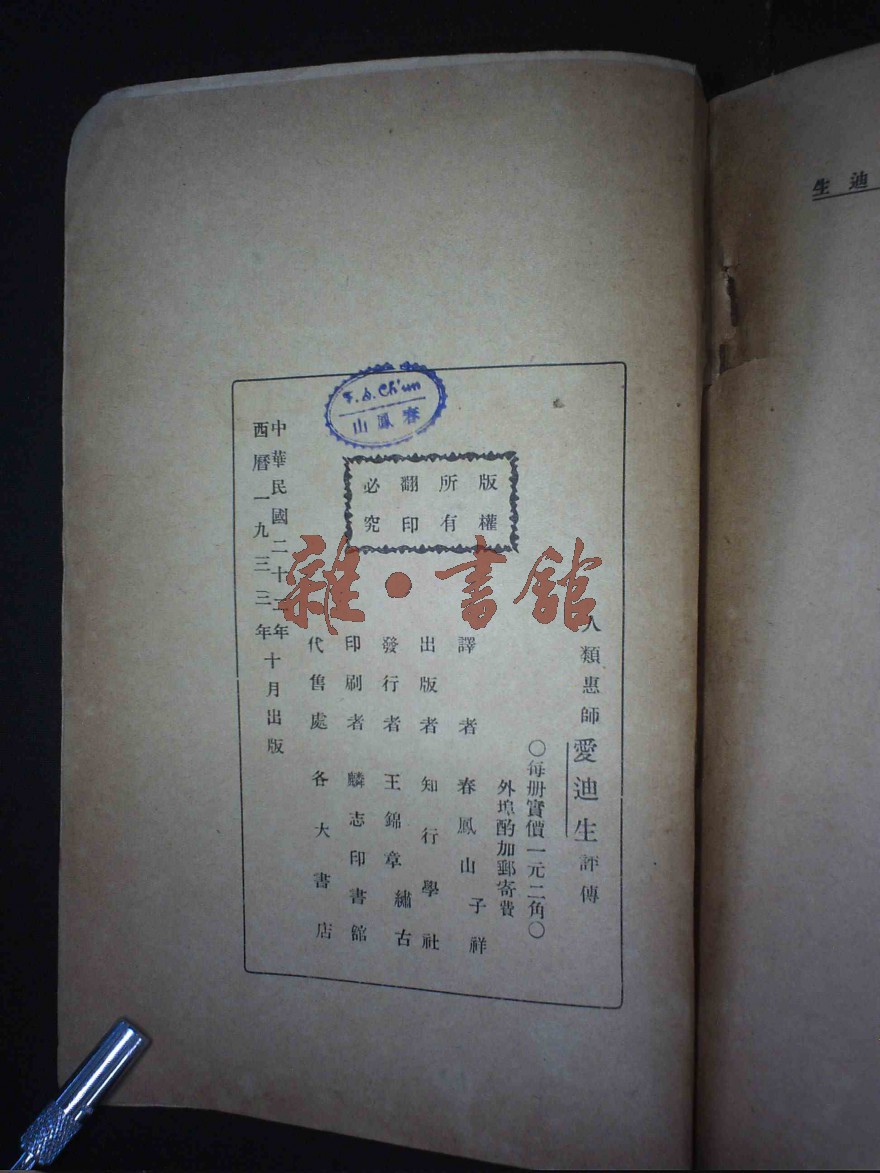 迪生
人類惠師愛迪生評傳
○每册實價一元二角○
外埠酌加郵寄費
譯者春鳳山子祥
出版者知行學社
發行者王錦章繡古
印刷者麟志印書館
代售處各大書店
中華民國二十二年
西曆一九三三年
十月出版
版權
所有
翻印
必究
F.S. Ch'un
春鳳山
雜·書館